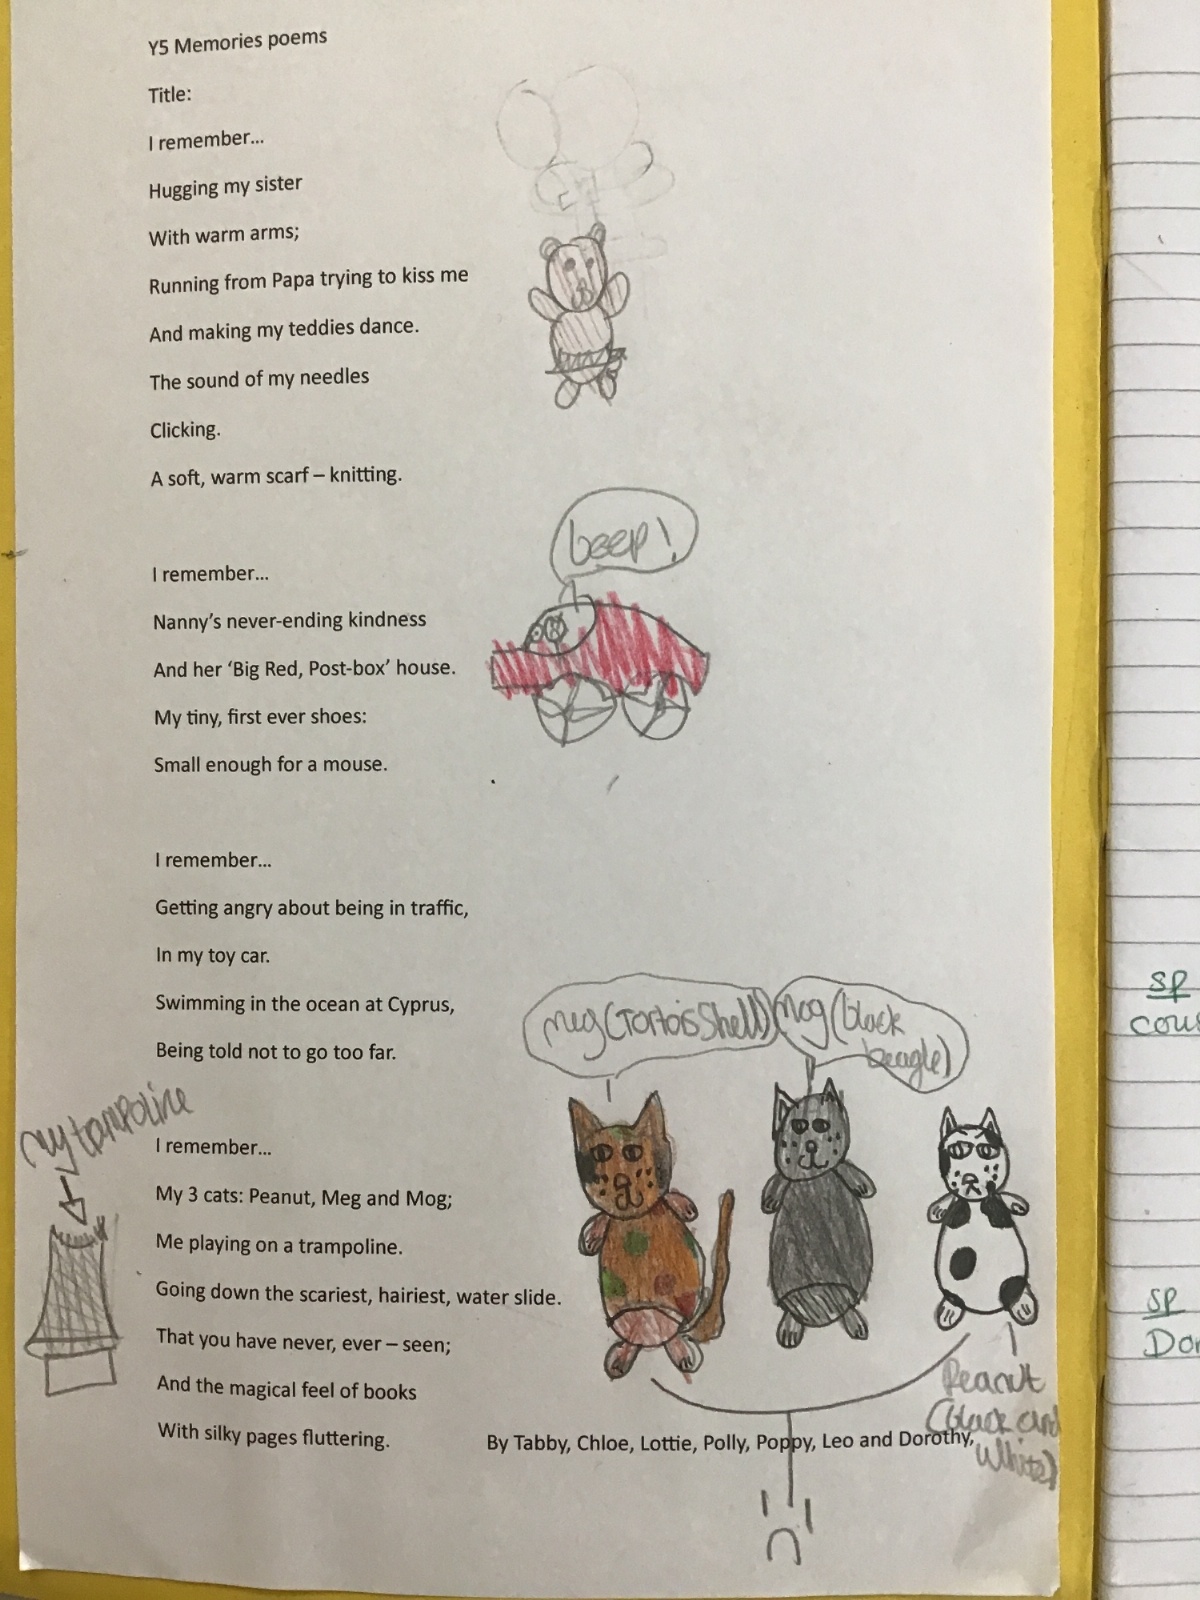 Y5 Memories poems
Title:
I remember...
Hugging my sister
With warm arms;
Running from Papa trying to kiss me
And making my teddies dance.
The sound of my needles
Clicking.
A soft, warm scarf – knitting.
beep!
I remember...
Nanny's never-ending kindness
And her 'Big Red, Post-box' house.
My tiny, first ever shoes:
Small enough for a mouse.
I remember...
Getting angry about being in traffic,
In my toy car.
Swimming in the ocean at Cyprus,
Being told not to go too far.
meg (TortoisShell)
Mog (black
beagle)
my tampoline
I remember...
My 3 cats: Peanut, Meg and Mog;
Me playing on a trampoline.
Going down the scariest, hairiest, water slide.
That you have never, ever – seen;
And the magical feel of books
With silky pages fluttering.
Peanut
(black and
White)
By Tabby, Chloe, Lottie, Polly, Poppy, Leo and Dorothy,
sp
sp